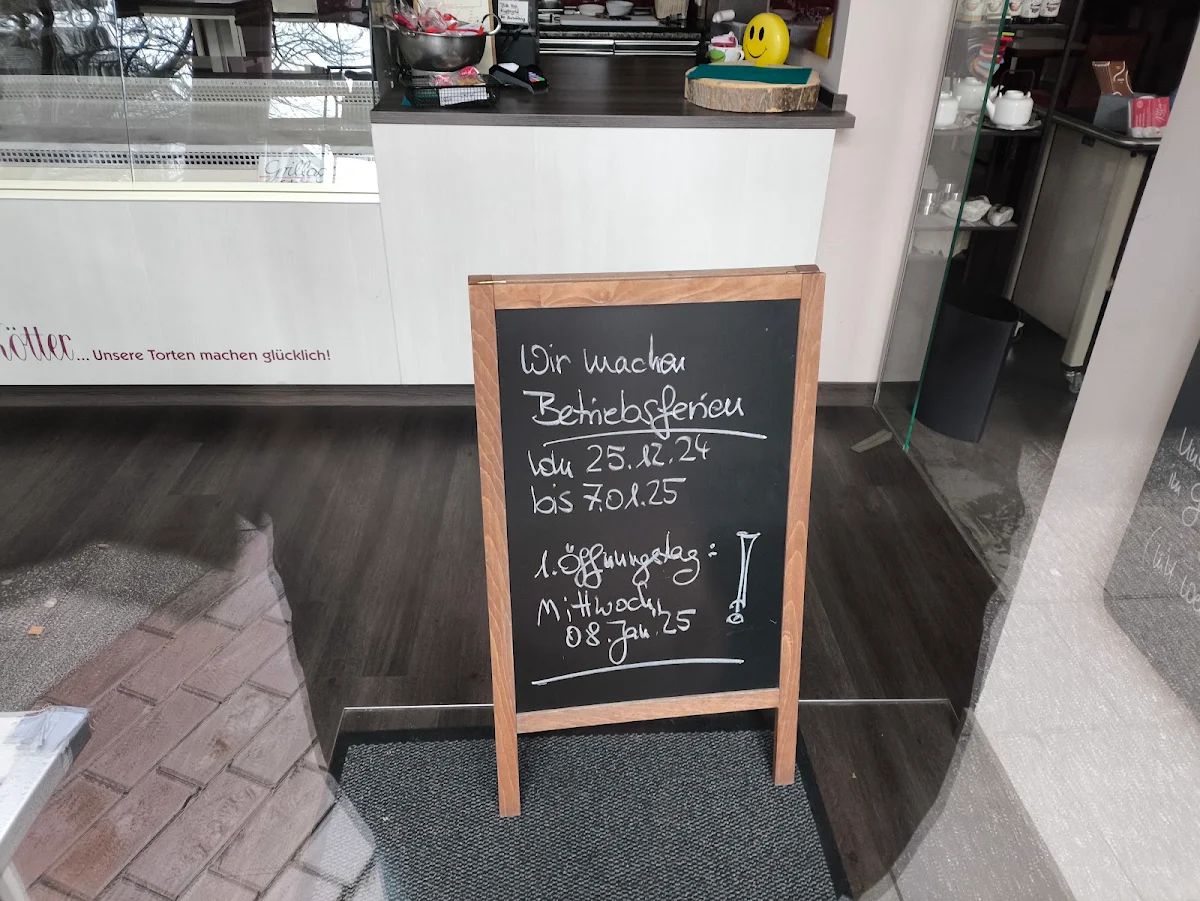 Grillag
kötter... Unsere Torten machen glücklich!
Wir machen
Betriebsferien
von 25.12.24
bis 7.01.25
1. Öffnungstag:
Mittwoch,
08. Jan. 25